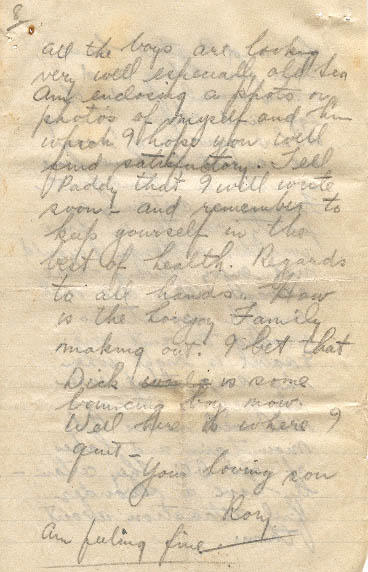 8
all the boys are looking
very well especially old Len
Am enclosing a photo or
photos of myself and him
which I hope you will
find satisfactory. Tell
Paddy that I will write
soon - and remember to
keep yourself in the
best of health. Regards
to all hands. How
is the Lovejoy Family
making out. I bet that
Dick is some
bouncing boy now.
Well here is where I
quit -
Your loving son
Roy
Am feeling fine